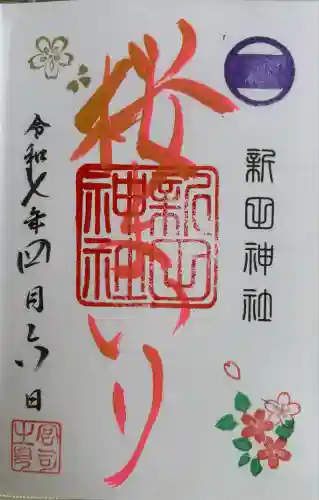 新田神社
桜まいり
新田
神社
令和七年四月六日
宮司
之章